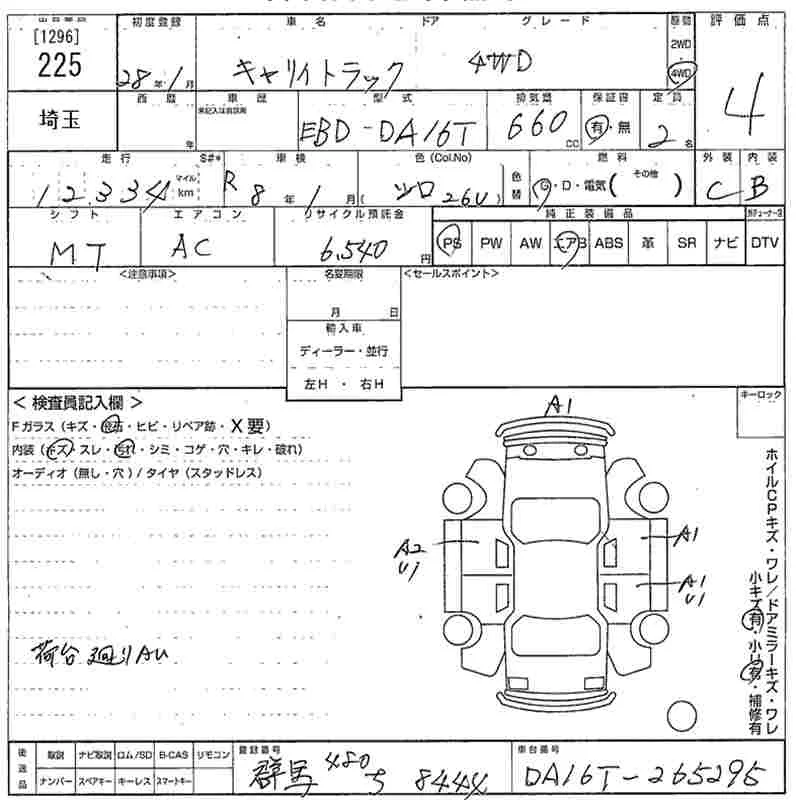 [1296]
225
埼玉
初度登録
28年1月
車名 ドア グレード
キャリイトラック 4WD
駆動
2WD
4WD
評価点
4
西暦
年
車歴
未記入は自家用
型式
EBD-DA16T
排気量
660cc
保証書
有・無
定員
2名
走行 S#*
12,334 マイル km
車検
R8年1月
色(Col.No)
(シロ 26U)
色替
燃料
G・D・電気( その他 )
外装 内装
C B
シフト
MT
エアコン
AC
リサイクル預託金
6,540円
純正装備品
PS PW AW エアB ABS 革 SR ナビ DTV
<注意事項>
名変期限
月 日
輸入車
ディーラー・並行
左H・右H
<セールスポイント>
<検査員記入欄>
Fガラス(キズ・飛石・ヒビ・リペア跡・X要)
内装(キズ・スレ・汚れ・シミ・コゲ・穴・キレ・破れ)
オーディオ(無し・穴)/タイヤ(スタッドレス)
キーロック
A1
A2
U1
A1
A1
U1
荷台廻りAU
ホイルCPキズ・ワレ/ドアミラーキズ・ワレ
小キズ有・小U有・補修有
後送品
取説 ナビ取説 ロム/SD B-CAS リモコン
ナンバー スペアキー キーレス スマートキー
登録番号
群馬 480 ち 8444
車台番号
DA16T-265295